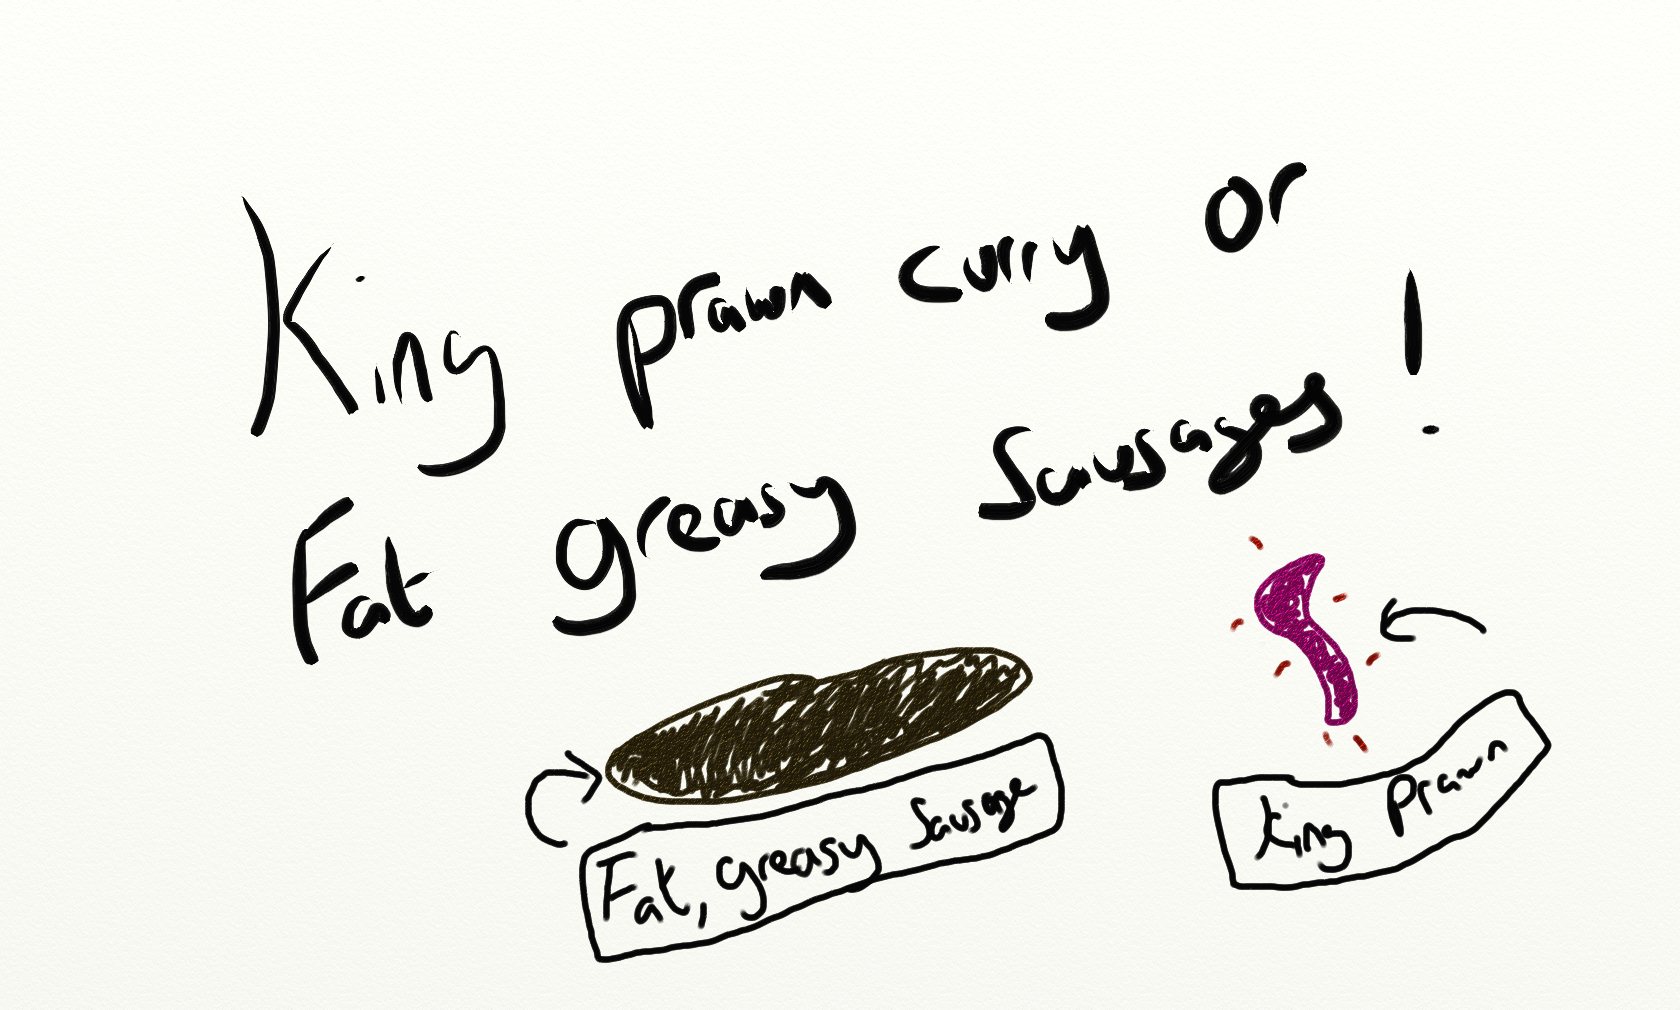 King prawn curry or
Fat greasy Sausages!
Fat, greasy Sausage
King Prawn